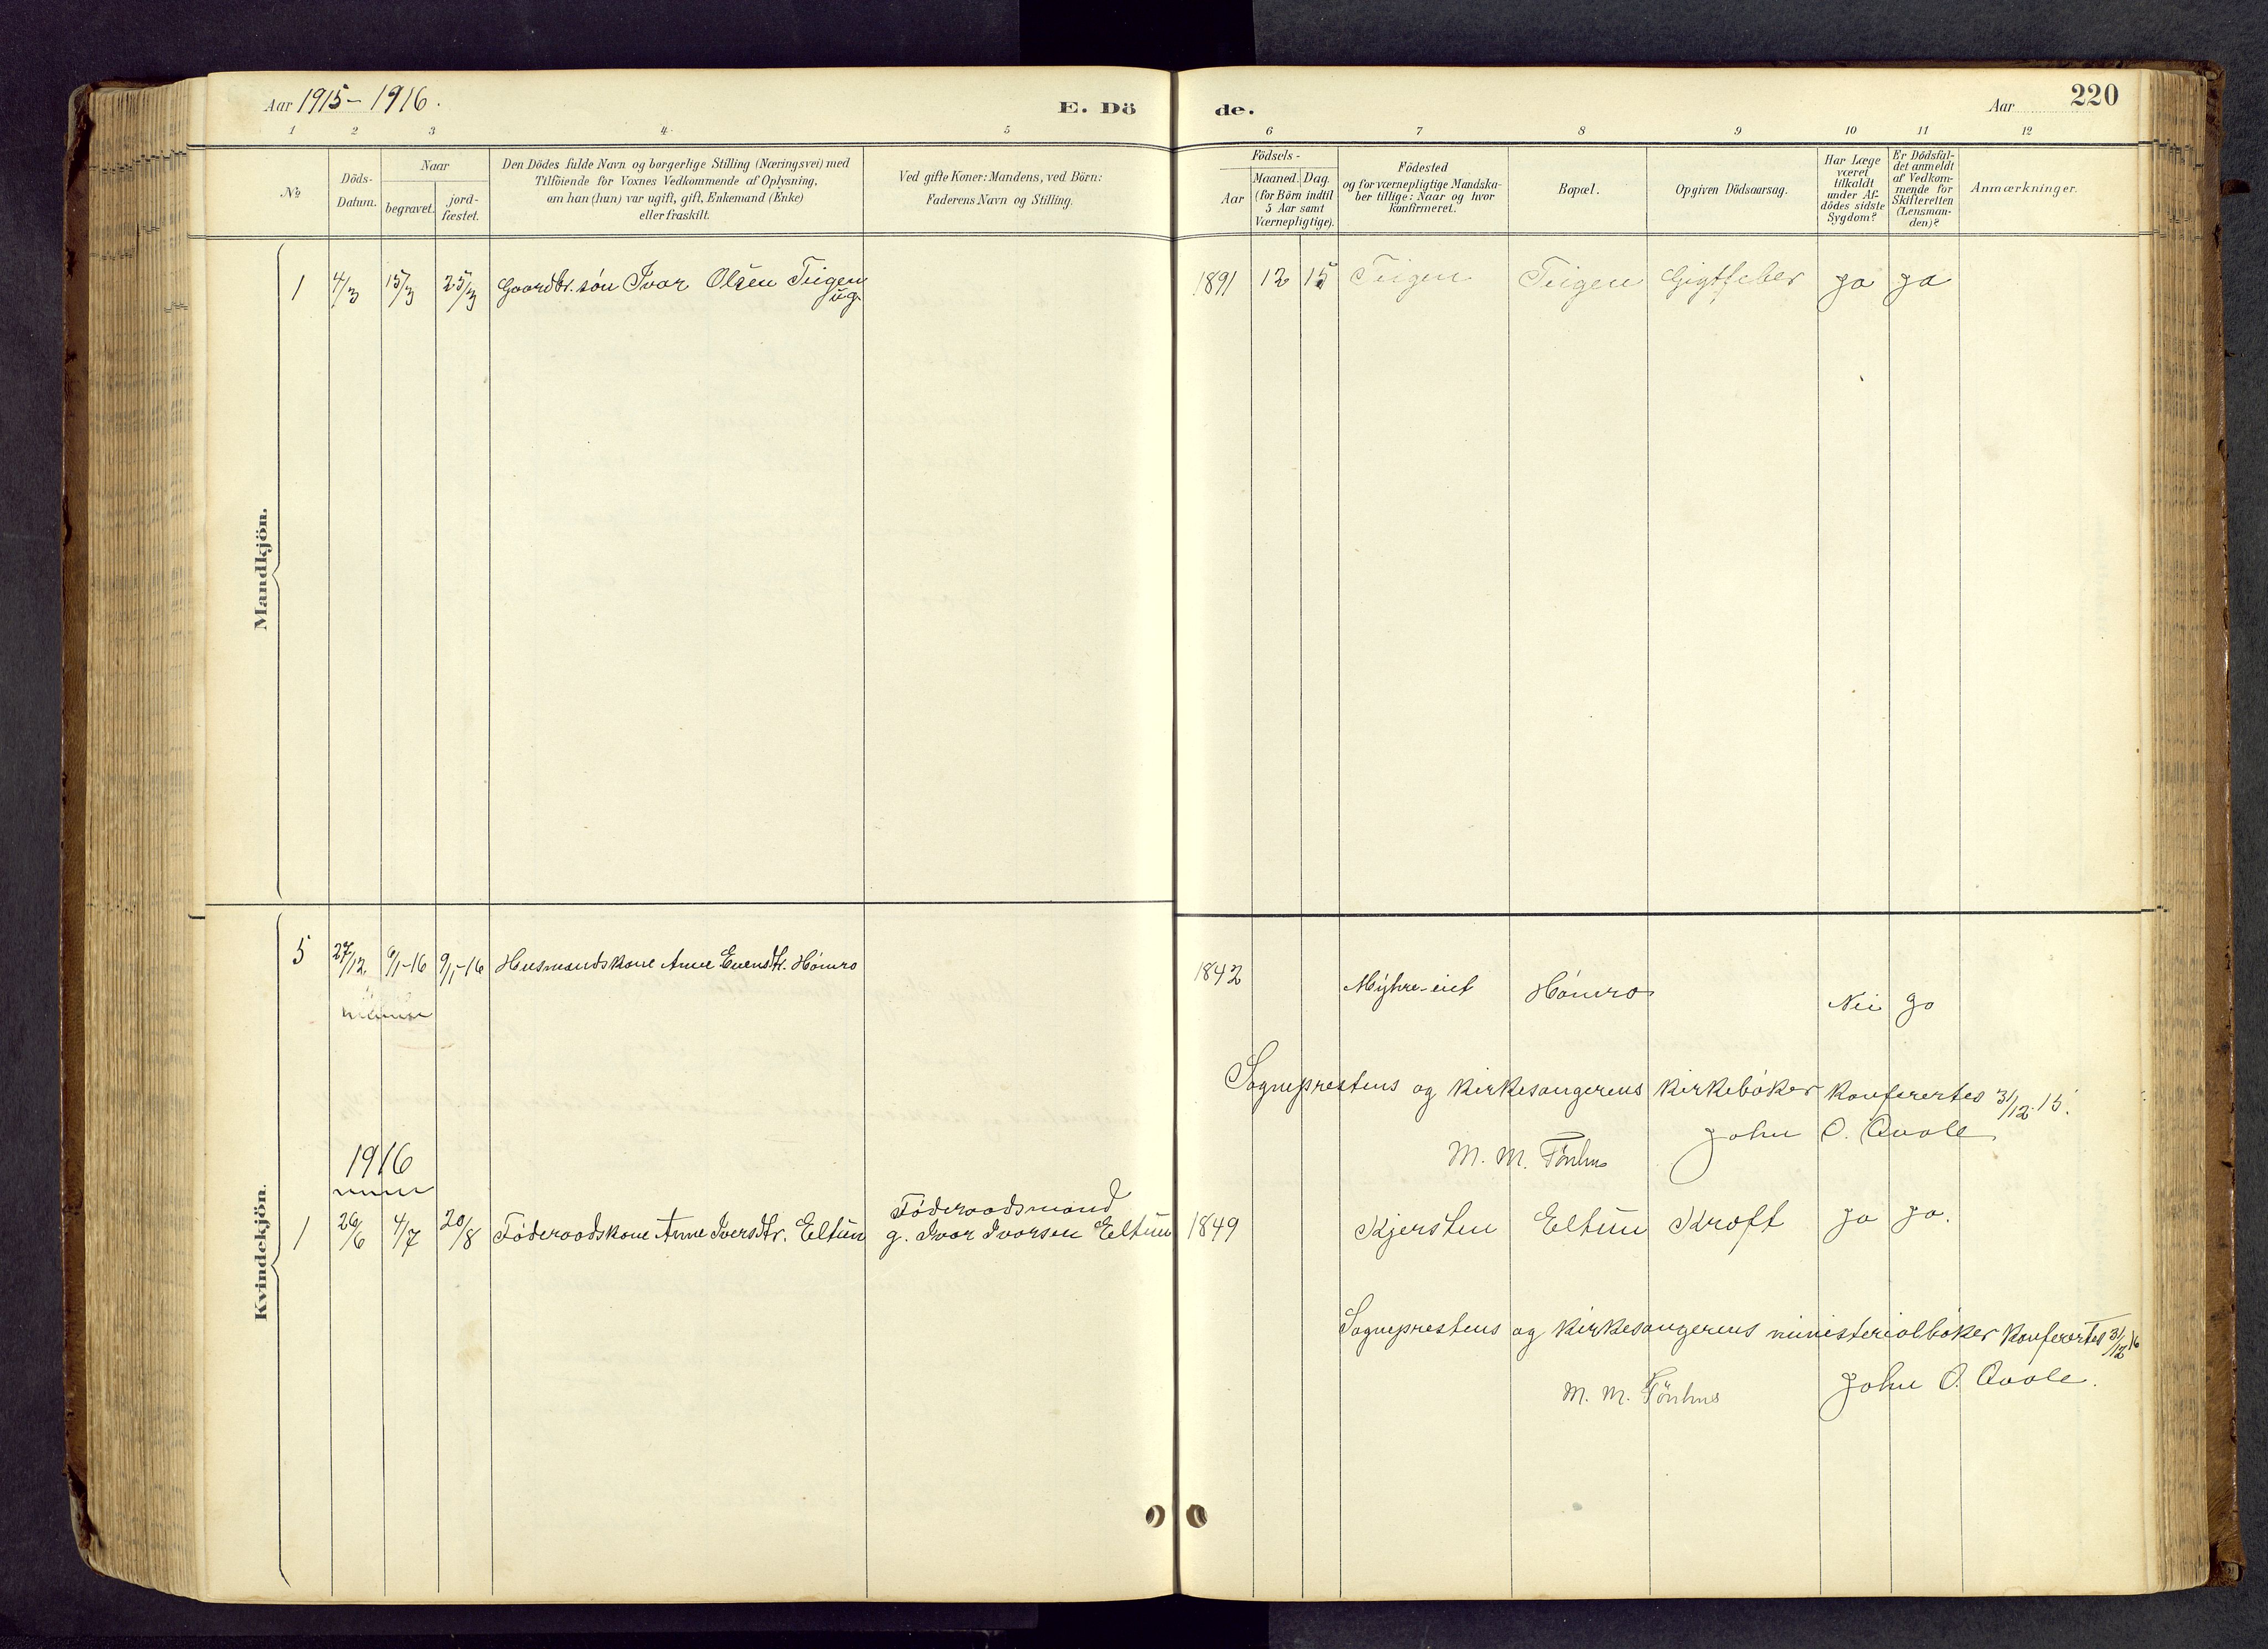 Aar 1915-1916.
E. Dö
de.
Aar
220
1 2 3 4. 5 6 7 8 9 10 11 12
No
Döds-
Datum.
Naar
begravet.
jord-
fæstet.
Den Dödes fulde Navn og borgerlige Stilling (Næringsvei) med
Tilföiende for Voxnes Vedkommende af Oplysning,
om han (hun) var ugift, gift, Enkemand (Enke)
eller fraskilt.
Ved gifte Koner: Mandens, ved Börn:
Faderens Navn og Stilling.
Födsels-
Aar
Maaned. Dag.
(for Börn indtil
5 Aar samt
Værnepligtige).
Födested
og for værnepligtige Mandska-
ber tillige: Naar og hvor
konfirmeret.
Bopæl.
Opgiven Dödsaarsag.
Har Læge
været
tilkaldt
under Af-
dödes sidste
Sygdom?
Er Dödsfal-
det anmeldt
af Vedkom-
mende for
Skifteretten
(Lensman-
den)?
Anmærkninger.
Mandkjön.
1 4/3 15/3 25/3 Gaardbr. søn Ivar Olsen Teigen 1891 12 15 Teigen Teigen Gigtfeber Ja Ja
ug.
Kvindekjön.
5 27/12 9/1-16 9/1-16 Husmandskone Anne Evensdtr. Hömro 1842 Myhre-eiet Hömro Nei Ja
Sogneprestens og kirkesangerens kirkebøker konferertes 31/12-15.
John O. Qvale
M. M. Tönhus
1916
Föderaadsmand
1 26/6 4/7 20/8 Föderaadskone Anne Iversdtr. Eltun g. Ivar Ivarsen Eltun 1849 Kjersten Eltun Kræft Ja Ja.
Sogneprestens og kirkesangerens ministerialbøker konferertes 31/12 16
John O. Qvale.
M. M. Tönhus